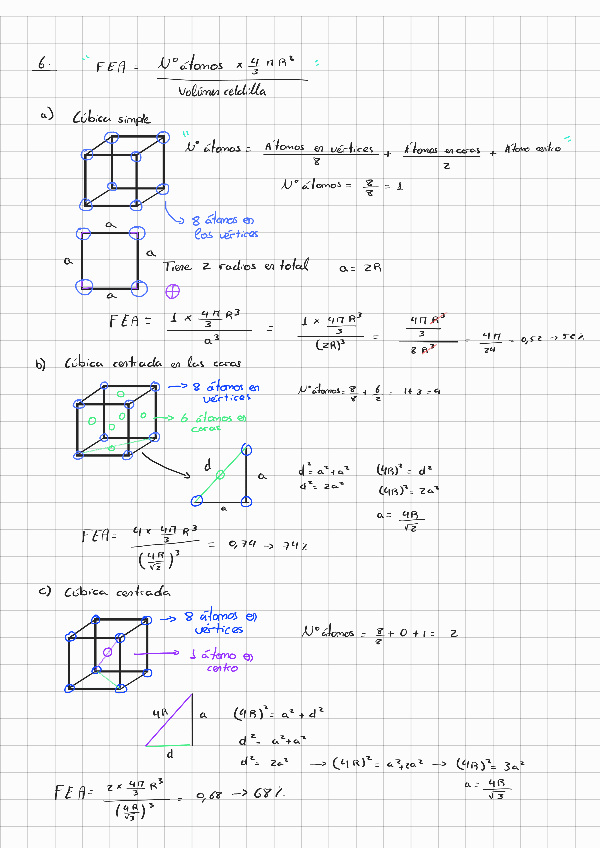 6. " FEA = Nº átomos × 4/3 π R³ "
Volúmen celdilla
a) Cúbica simple
" Nº átomos = Átomos en vértices/8 + Átomos en caras/2 + Átomo centro "
Nº átomos = 8/8 = 1
→ 8 átomos en
los vértices
a
a a
a
Tiene 2 radios en total a = 2R
FEA = 1 × 4π/3 R³ / a³ = 1 × 4π/3 R³ / (2R)³ = 4π/3 R³ / 8R³ = 4π/24 = 0,52 → 52%
b) Cúbica centrada en las caras
→ 8 átomos en
vértices
Nº átomos = 8/8 + 6/2 = 1+3 = 4
→ 6 átomos en
caras
d a
a
d² = a² + a² (4R)² = d²
d² = 2a² (4R)² = 2a²
a = 4R/√2
FEA = 4 × 4π/3 R³ / (4R/√2)³ = 0,74 → 74%
c) Cúbica centrada
→ 8 átomos en
vértices
Nº átomos = 8/8 + 0 + 1 = 2
→ 1 átomo en
centro
4R a
d
(4R)² = a² + d²
d² = a² + a²
d² = 2a² → (4R)² = a² + 2a² → (4R)² = 3a²
a = 4R/√3
FEA = 2 × 4π/3 R³ / (4R/√3)³ = 0,68 → 68%